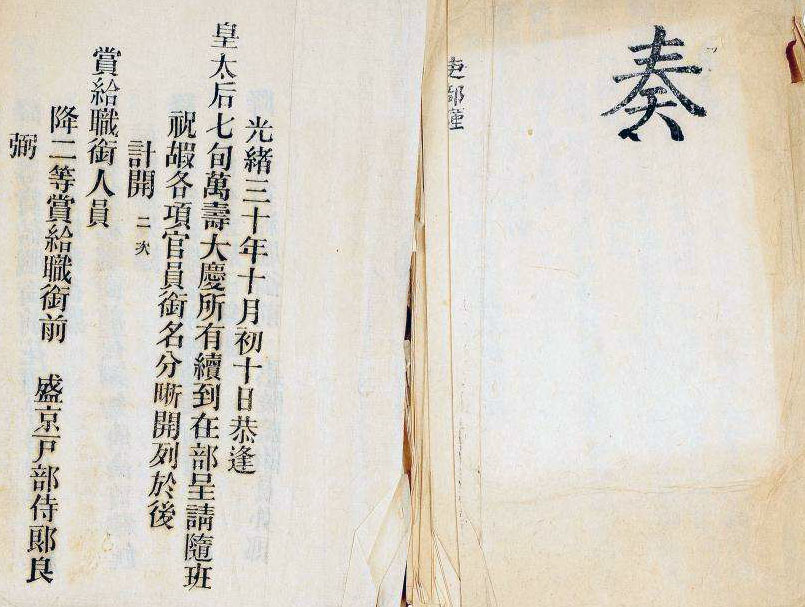 奏
吏部謹
光緒三十年十月初十日恭逢
皇太后七旬萬壽大慶所有續到在部呈請隨班
祝嘏各項官員銜名分晰開列於後
計開 二次
賞給職銜人員
降二等賞給職銜前 盛京戸部侍郎良
弼